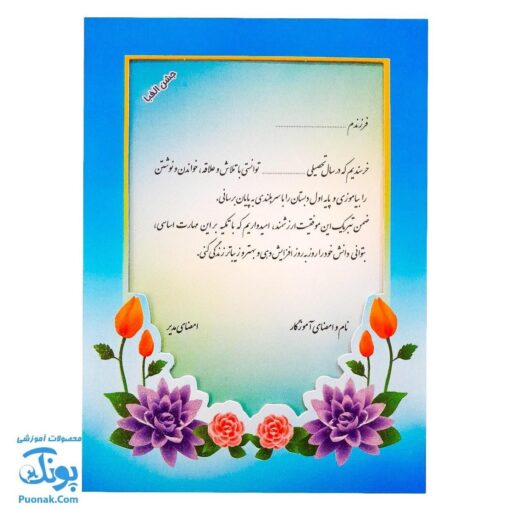 جشن الفبا
فرزندم ..............................
خرسندیم که در سال تحصیلی .............................. توانستی با تلاش و علاقه، خواندن و نوشتن
را بیاموزی و پایه اول دبستان را با سربلندی به پایان برسانی.
ضمن تبریک این موفقیت ارزشمند، امیدواریم که با تکیه بر این مهارت اساسی،
بتوانی دانش خود را روز به روز افزایش دهی و بهتر و زیباتر زندگی کنی.
نام و امضای آموزگار
امضای مدیر
محصولات آموزشی
پونک
Puonak.Com